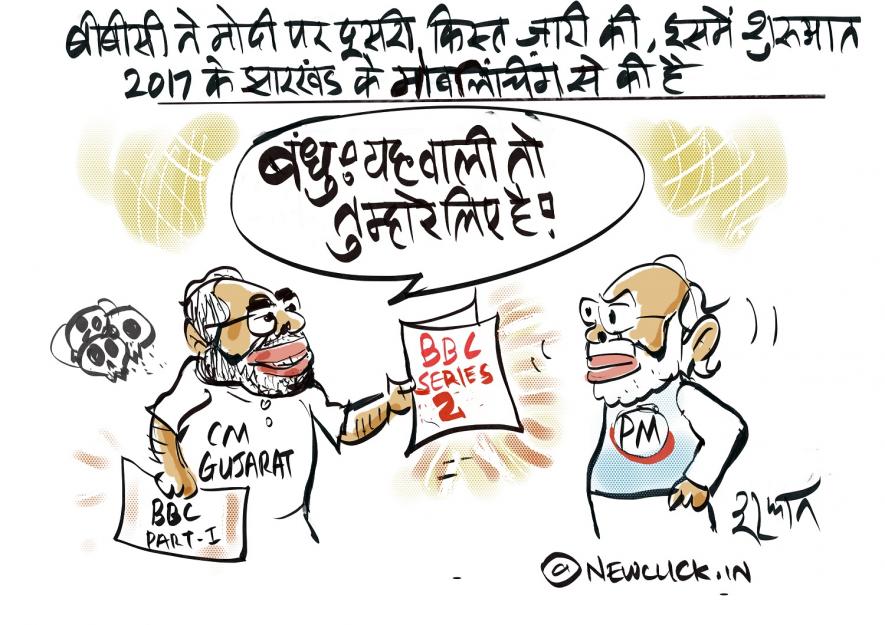 बीबीसी ने मोदी पर दूसरी किस्त ज़ारी की, इसमें शुरूआत
2017 के झारखंड के मोबलिंचिंग से की है
बंधु! यह वाली तो
तुम्हारे लिए है!
BBC
SERIES
2
CM
GUJARAT
PM
BBC
PART-I
@NEWCLICK.IN